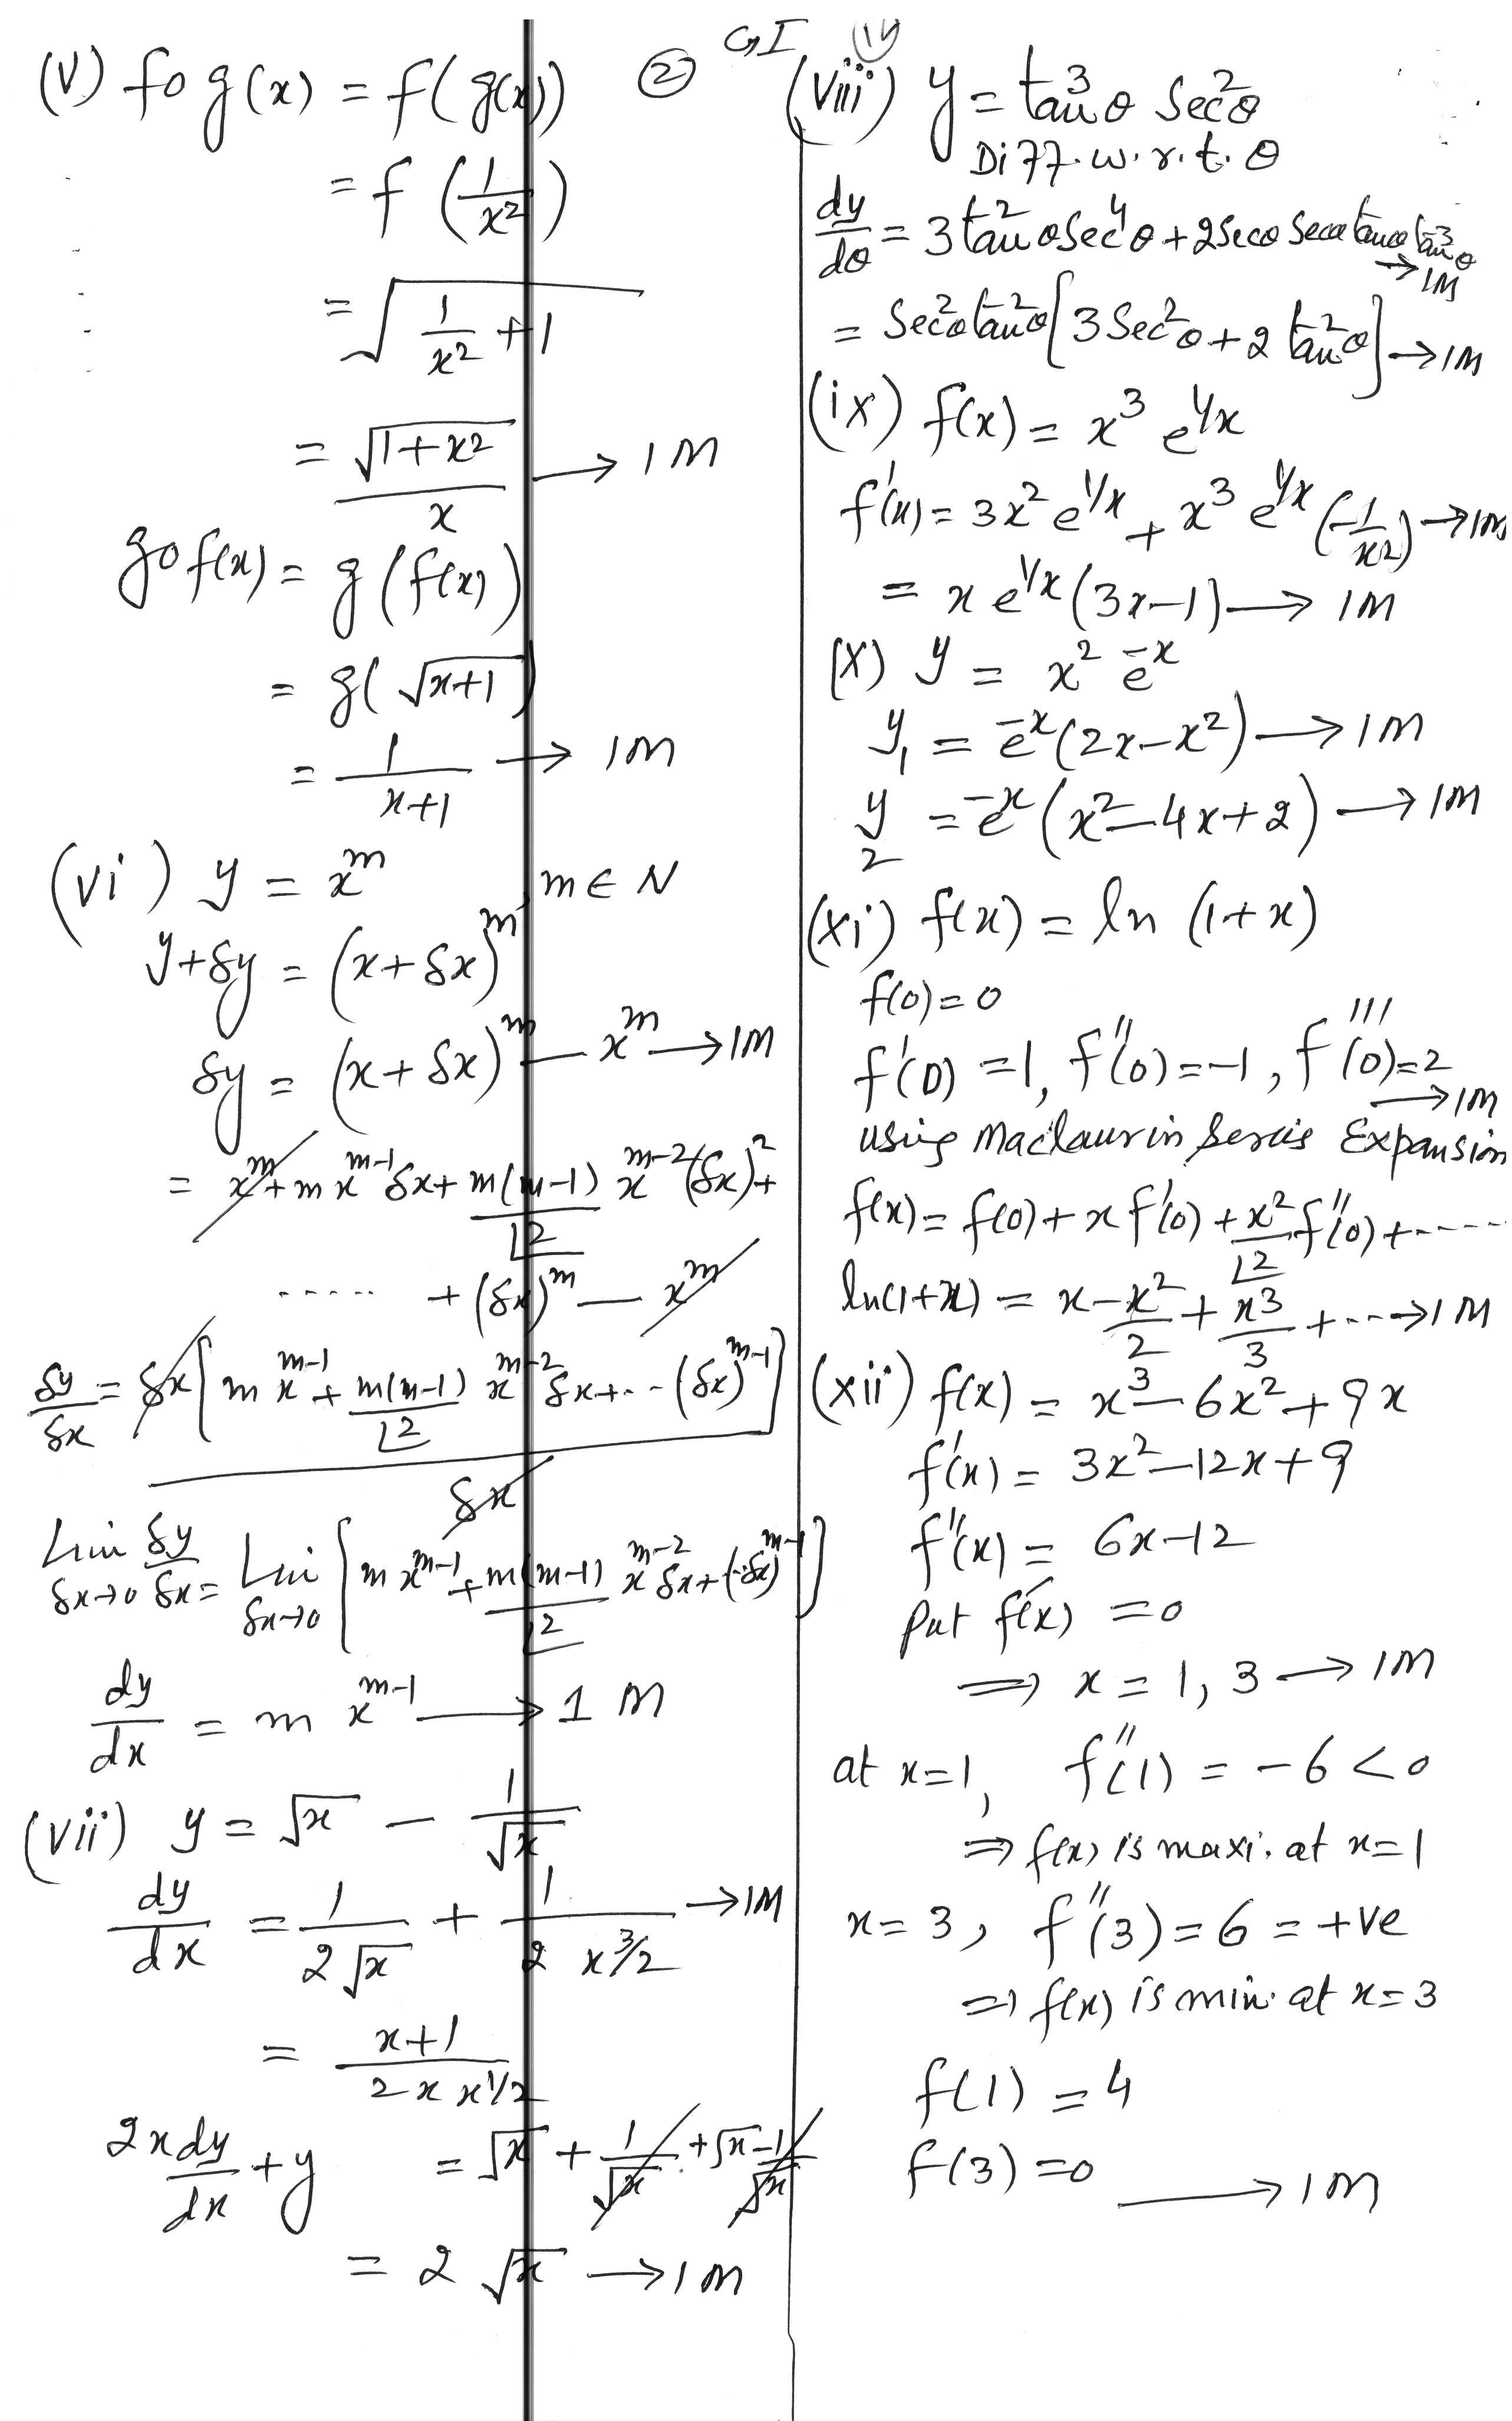 GI (14)
②
(v) fog(x) = f(g(x))
= f(1/x²)
= √(1/x² + 1)
= √(1+x²)/x → 1M
gof(x) = g(f(x))
= g(√(x+1))
= 1/(x+1) → 1M
(vi) y = x^m, m ∈ N
y+δy = (x+δx)^m
δy = (x+δx)^m − x^m → 1M
= x^m + m x^(m-1) δx + m(m-1)/⌊2 x^(m-2) (δx)² +
..... + (δx)^m − x^m
δy/δx = δx[m x^(m-1) + m(m-1)/⌊2 x^(m-2) δx + .. (δx)^(m-1)]/δx
Lim δx→0 δy/δx = Lim δx→0 [m x^(m-1) + m(m-1)/⌊2 x^(m-2) δx + (..δx)^(m-1)]
dy/dx = m x^(m-1) → 1 M
(vii) y = √x − 1/√x
dy/dx = 1/(2√x) + 1/(2 x^(3/2)) → 1M
= (x+1)/(2x x^(1/2))
2x dy/dx + y = √x + 1/√x + √x − 1/√x
= 2√x → 1M
(viii) y = tan³θ sec²θ
Diff. w.r.t. θ
dy/dθ = 3tan²θ sec⁴θ + 2secθ secθ tanθ tan³θ → 1M
= sec²θ tan²θ[3sec²θ + 2tan²θ] → 1M
(ix) f(x) = x³ e^(1/x)
f'(x) = 3x² e^(1/x) + x³ e^(1/x) (−1/x²) → 1M
= x e^(1/x) (3x−1) → 1M
(x) y = x² e^(−x)
y₁ = e^(−x) (2x−x²) → 1M
y₂ = e^(−x) (x²−4x+2) → 1M
(xi) f(x) = ln (1+x)
f(0)=0
f'(0) = 1, f''(0) = −1, f'''(0) = 2 → 1M
using Maclaurin Series Expansion
f(x) = f(0) + x f'(0) + x²/⌊2 f''(0) + ......
ln(1+x) = x − x²/2 + x³/3 + ... → 1M
(xii) f(x) = x³ − 6x² + 9x
f'(x) = 3x² − 12x + 9
f''(x) = 6x−12
Put f'(x) = 0
⇒ x = 1, 3 → 1M
at x=1, f''(1) = −6 < 0
⇒ f(x) is maxi. at x=1
x = 3, f''(3) = 6 = +ve
⇒ f(x) is min. at x=3
f(1) = 4
f(3) = 0 → 1M